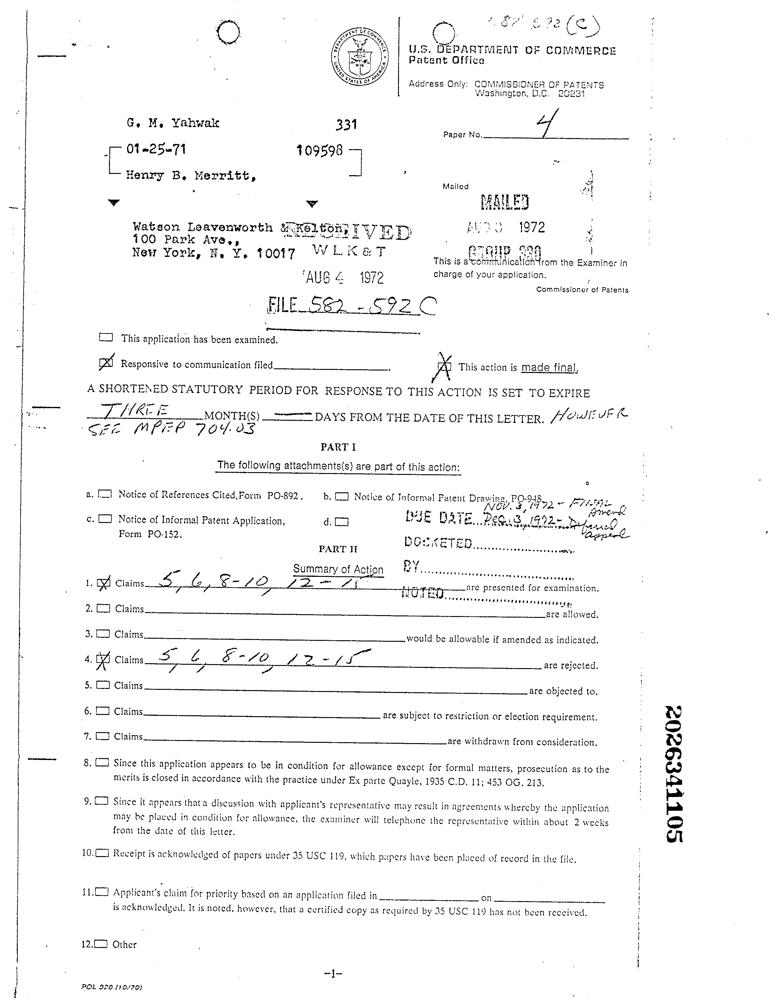 (C)
U.S. DEPARTMENT OF COMMERCE
Patent Office
Address Only: COMMISSIONER OF PATENTS
Washington, D.C. 20231
G. M. Yahwak 331
Paper No. 4
01-25-71 109598
Henry B. Merritt,
Mailed
MAILED
Watson Leavenworth & Kelton,
AUG 3 1972
100 Park Ave.,
New York, N. Y. 10017 W L K & T
This is a communication from the Examiner in
charge of your application.
AUG 4 1972
Commissioner of Patents
FILE 582-592C
This application has been examined.
Responsive to communication filed
This action is made final.
A SHORTENED STATUTORY PERIOD FOR RESPONSE TO THIS ACTION IS SET TO EXPIRE
THREE MONTH(S) DAYS FROM THE DATE OF THIS LETTER. HOWEVER
SEE MPEP 704.03
PART I
The following attachments(s) are part of this action:
a. Notice of References Cited, Form PO-892. b. Notice of Informal Patent Drawing, PO-948.
NOV. 3, 1972 - FINAL
Amend
c. Notice of Informal Patent Application, d.
Form PO-152.
DUE DATE Dec. 3, 1972-
appeal
PART II
DOCKETED
Summary of Action
BY
1. Claims 5, 6, 8-10, 12-15 are presented for examination.
NOTED
2. Claims are allowed.
3. Claims would be allowable if amended as indicated.
4. Claims 5, 6, 8-10, 12-15 are rejected.
5. Claims are objected to.
6. Claims are subject to restriction or election requirement.
7. Claims are withdrawn from consideration.
8. Since this application appears to be in condition for allowance except for formal matters, prosecution as to the
merits is closed in accordance with the practice under Ex parte Quayle, 1935 C.D. 11; 453 OG. 213.
9. Since it appears that a discussion with applicant's representative may result in agreements whereby the application
may be placed in condition for allowance, the examiner will telephone the representative within about 2 weeks
from the date of this letter.
10. Receipt is acknowledged of papers under 35 USC 119, which papers have been placed of record in the file.
11. Applicant's claim for priority based on an application filed in on
is acknowledged. It is noted, however, that a certified copy as required by 35 USC 119 has not been received.
12. Other
-1-
POL 326 (10/70)
2026341105